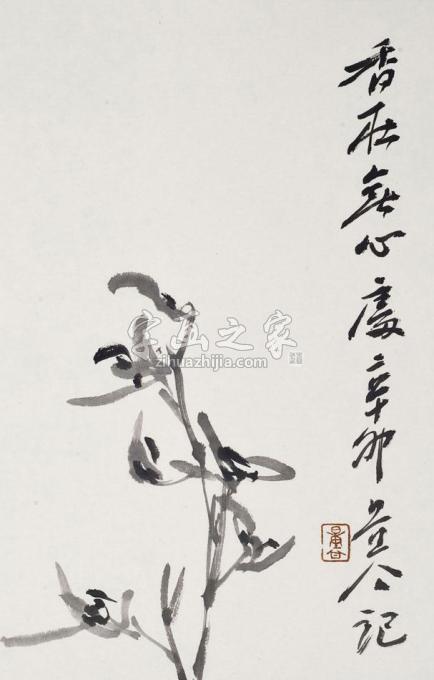 香在無心處辛卯量公記
字画之家
zihuazhijia.com